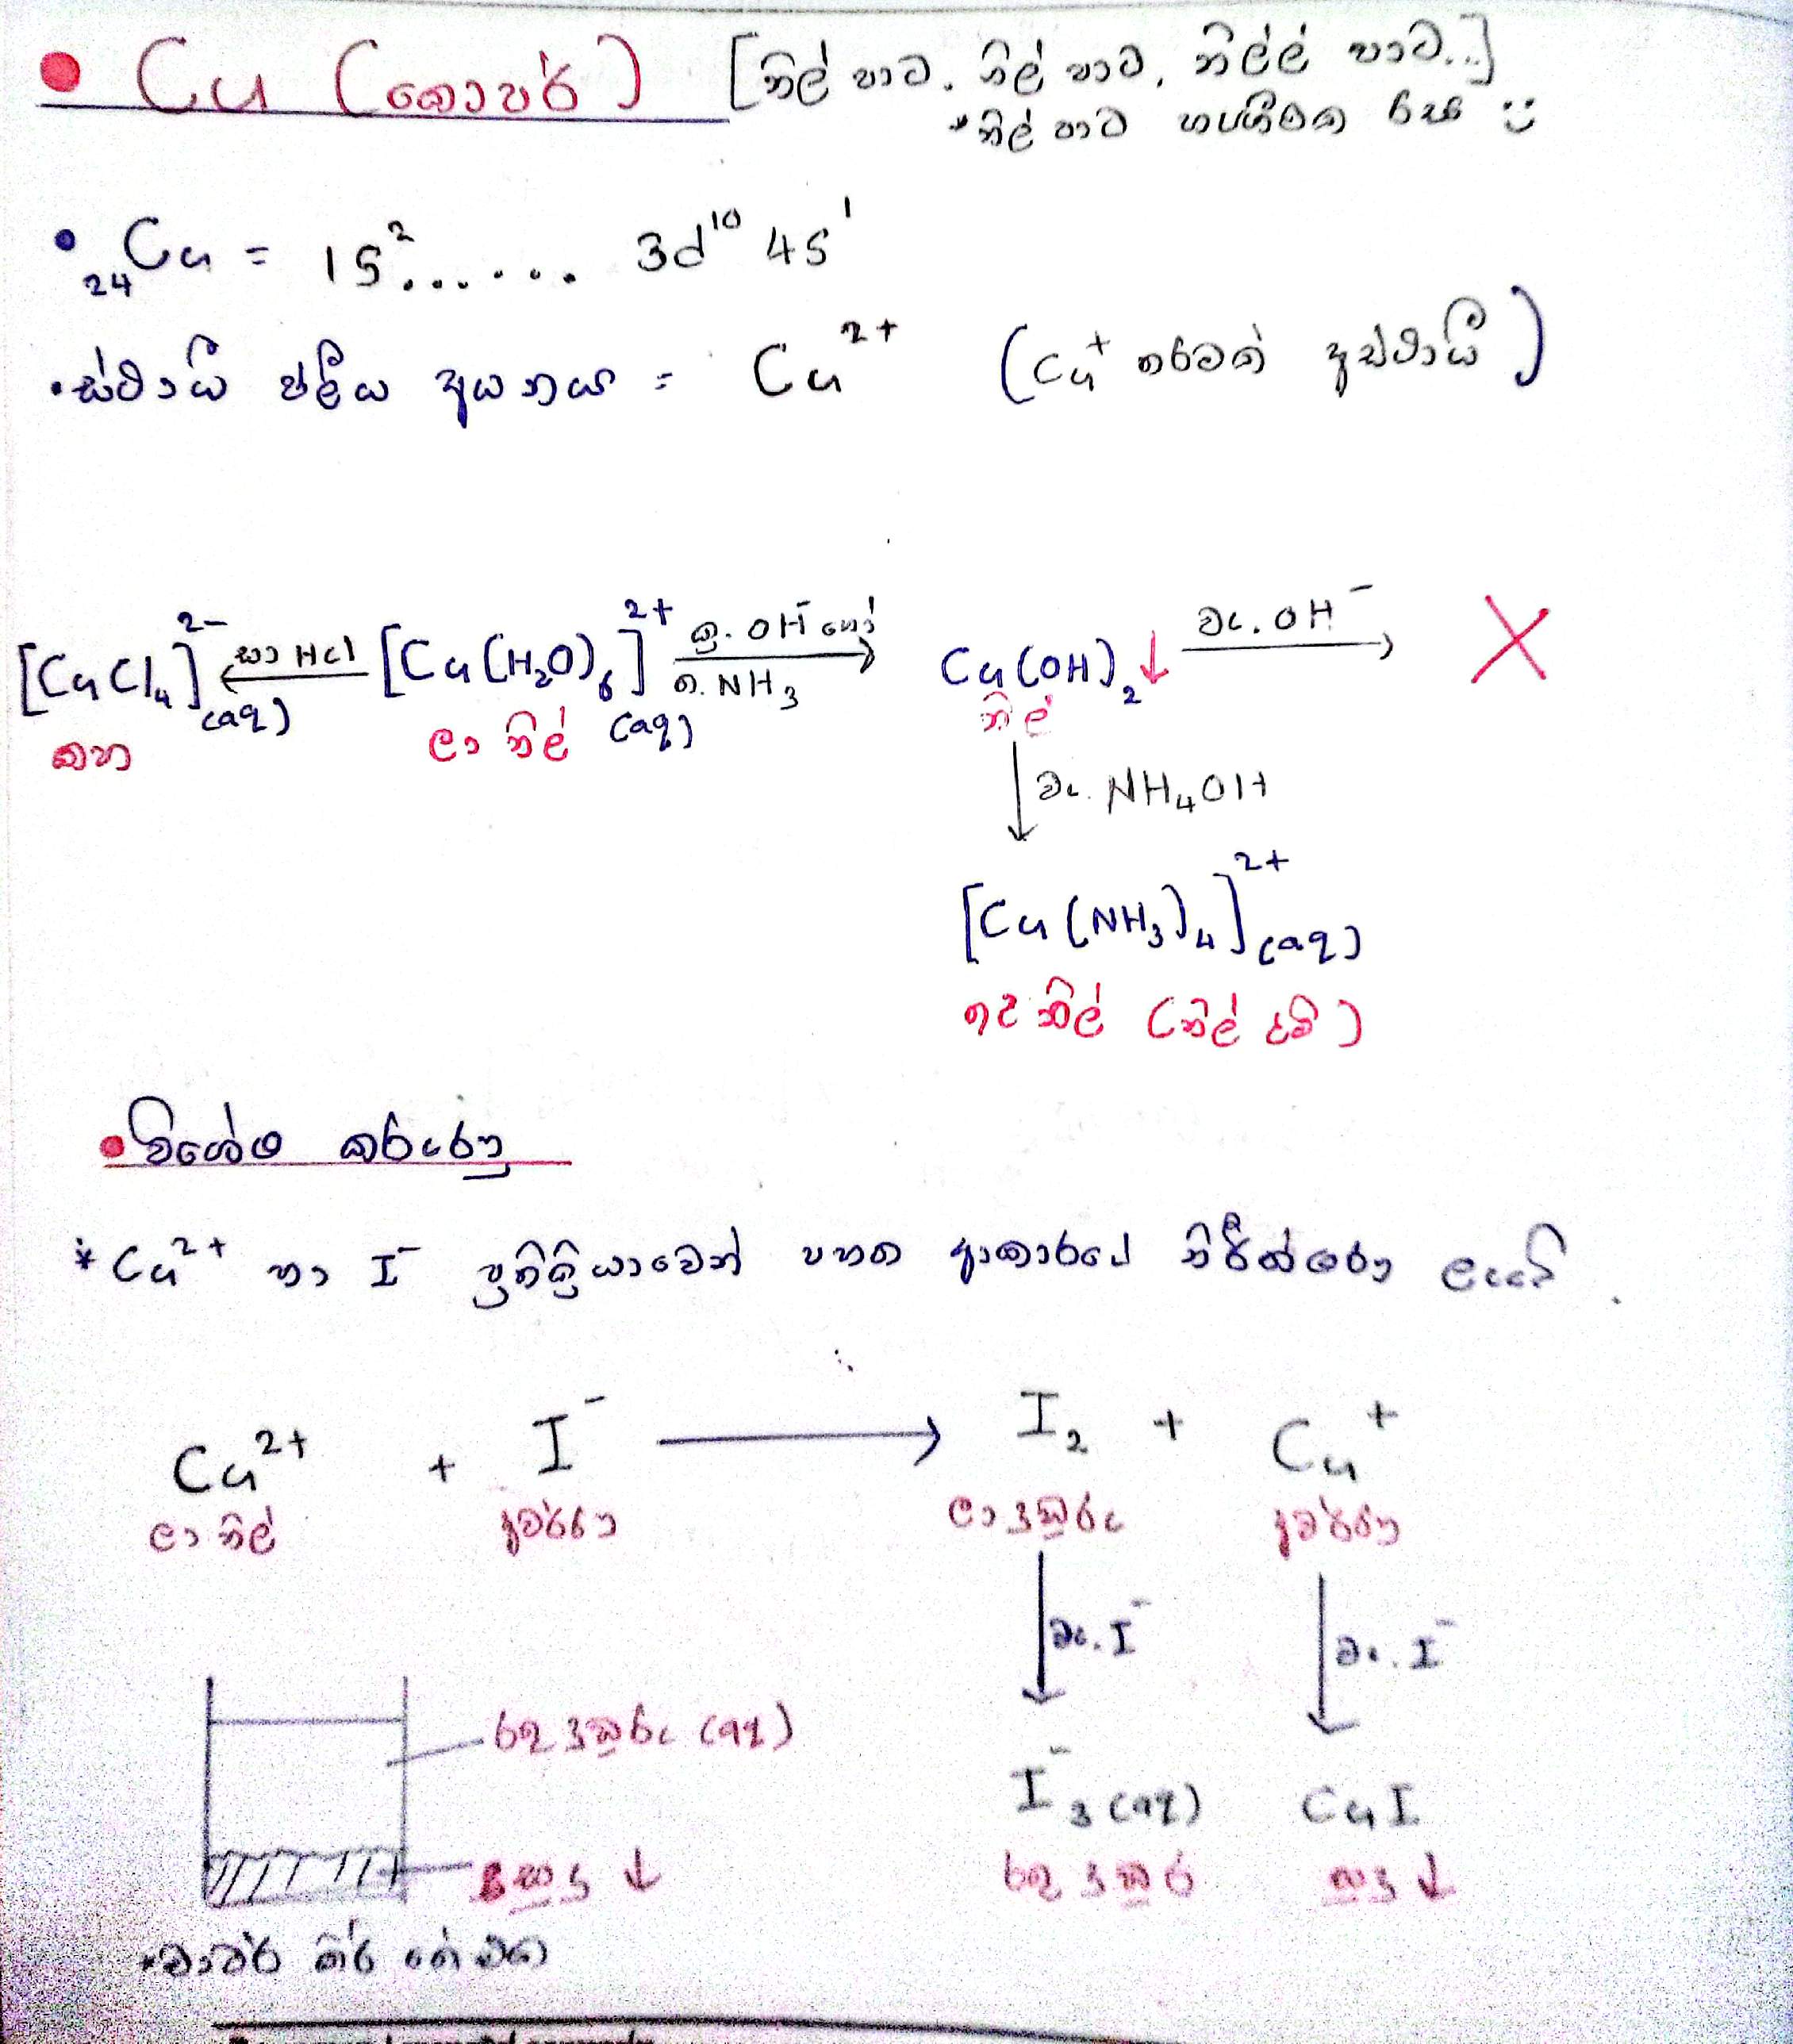 • Cu (කොපර්) [නිල් පාට, නිල් පාට, නිල්ල් පාට..]
*නිල් පාට
• ₂₄Cu = 1s²...... 3d¹⁰ 4s¹
• ස්ථායී ජලීය අයනය = Cu²⁺ (Cu⁺ තරමක් අස්ථායී)
[CuCl₄]²⁻(aq) ← සා HCl [Cu(H₂O)₆]²⁺(aq) ත. OH⁻ හෝ ත. NH₃ → Cu(OH)₂↓ වැ. OH⁻ → X
කහ ලා නිල් නිල්
↓ වැ. NH₄OH
[Cu(NH₃)₄]²⁺(aq)
තද නිල් (නිල් දම්)
• විශේෂ කරුණු
* Cu²⁺ හා I⁻ ප්‍රතික්‍රියාවෙන් පහත ආකාරයේ නිරීක්ෂණ ලැබේ.
Cu²⁺ + I⁻ → I₂ + Cu⁺
ලා නිල් අවර්ණ ලා දුඹුරු අවර්ණ
↓ වැ. I⁻ ↓ වැ. I⁻
රතු දුඹුරු (aq)
I₃⁻(aq) CuI
සුදු ↓
රතු දුඹුරු සුදු ↓